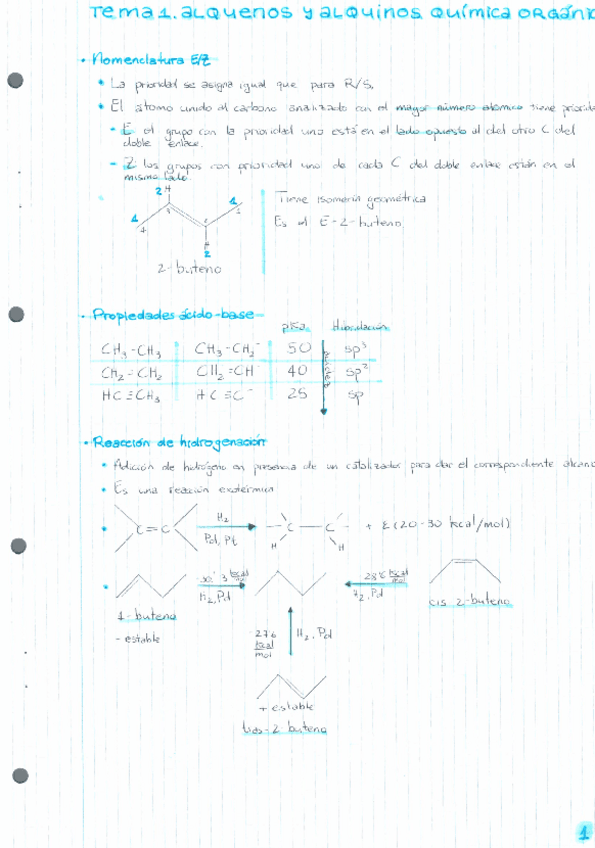 Tema 1. alquenos y alquinos Química orgáni
• Nomenclatura E/Z
• La prioridad se asigna igual que para R/S.
• El átomo unido al carbono analizado con el mayor número atómico tiene priorida
- E el grupo con la prioridad uno está en el lado opuesto al del otro C del
doble enlace.
- Z los grupos con prioridad uno de cada C del doble enlace están en el
mismo lado.
2 H
1
1
H
2
2-buteno
Tiene isomería geométrica
Es el E-2-buteno
• Propiedades ácido-base
pKa Hibridación
CH3-CH3 CH3-CH2⁻ 50 sp³
CH2=CH2 CH2=CH⁻ 40 sp²
HC≡CH3 HC≡C⁻ 25 sp
• Reacción de hidrogenación
• Adición de hidrógeno en presencia de un catalizador para dar el correspondiente alcano
• Es una reacción exotérmica
C=C H2 Pd, Pt C C H H + E (20-30 kcal/mol)
kcal/mol
H2, Pd
kcal/mol
H2, Pd
1-buteno
- estable
cis 2-buteno
276 kcal/mol H2, Pd
+ estable
trans-2 buteno
1